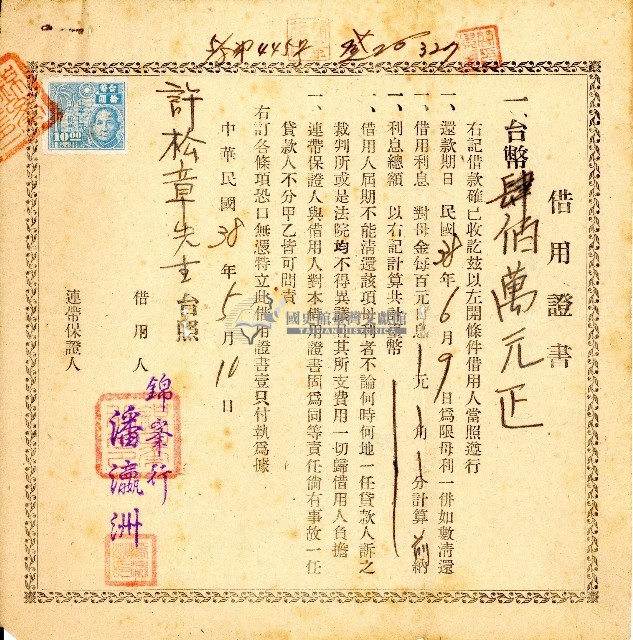 借用證書
一、台幣肆佰萬元正
右記借款確已收訖茲以左開條件借用人當照遵行
一、還款期日 民國38年6月9日爲限母利一併如數清還
一、借用利息 對母金每百元日息 元 角 分計算前納
一、利息總額 以右記計算共計台幣
一、借用人屆期不能清還該項母利者不論何時何地一任貸款人訴之
裁判所或是法院均不得異議 其所支費用一切歸借用人負擔
一、連帶保證人與借用人對本借用證書固爲同等責任倘有事故一任
貸款人不分甲乙皆可問責
右訂各條項恐口無憑特立此借用證書壹只付執爲據
中華民國38年5月10日
許松章先生台照
借用人
錦峯行
潘瀛洲
連帶保證人
國史館臺灣文獻館
TAIWAN HISTORICA
10.00